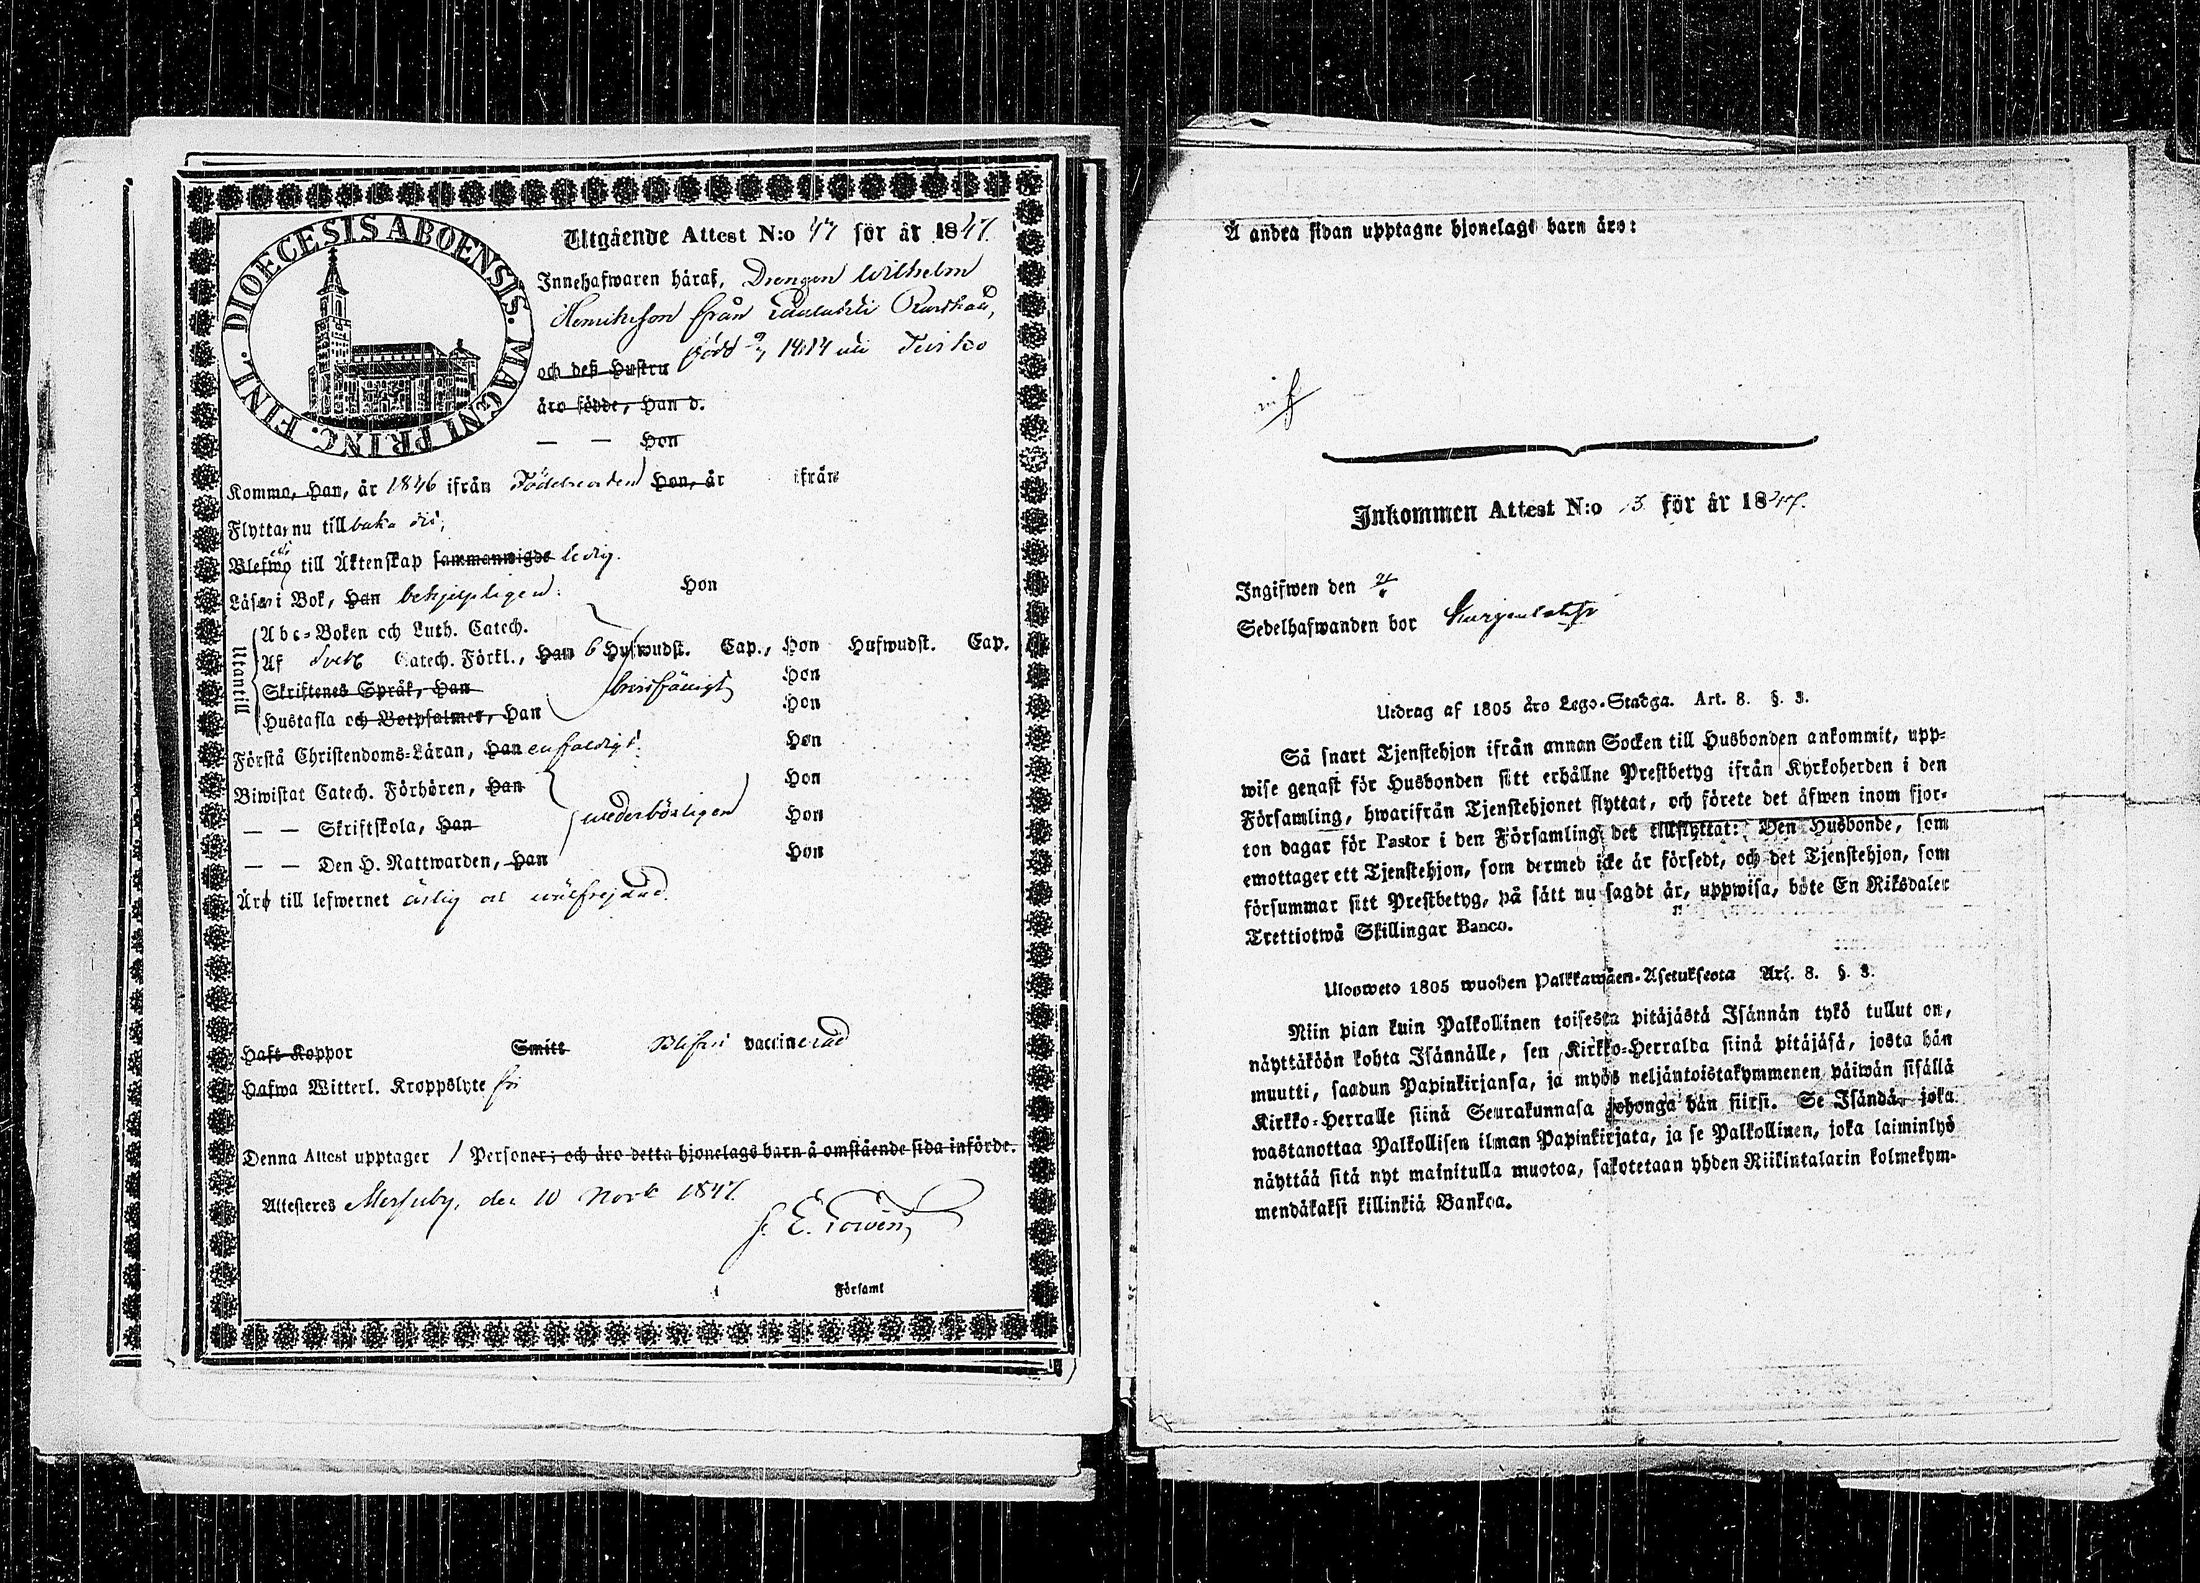 DIOECESIS ABOENSIS. MAGNI PRINC. FINL.
Utgående Attest N:o 47 för år 1847.
Innehafwaren häraf, Drengen Wilhelm
Henriksson från
född 1814 uti
och deß Hustru
äro födde, Han d.
— — Hon
Komma, Han, år 1846 ifrån Födelseorten Hon, år ifrån
Flytta nu tillbaka dit,
Blefwo till Äktenskap sammanwigde ledig.
Läsa i Bok, Han behjelpligen. Hon
Utantill
Abc-Boken och Luth. Catech.
Af Sveb. Catech. Förkl., Han 6 Hufwudst. Cap., Hon Hufwudst. Cap.
Skriftenes Språk, Han Hon
Hustafla och Botpsalmer, Han Hon
Förstå Christendoms-Läran, Han enfaldigt. Hon
Biwistat Catech. Förhören, Han Hon
— — Skriftskola, Han wederbörligen Hon
— — Den H. Nattwarden, Han Hon
Äro till lefwernet ärlig och wälfrejdad.
Haft Koppor Smitt Blifvit vaccinerad
Hafwa Witterl. Kroppslyte fri
Denna Attest upptager 1 Personer; och äro detta hjonelags barn å omstående sida införde.
Attesteres Merimasku, den 10 Nov. 1847.
i Församl
Å andra sidan upptagne hjonelags barn äro:
Inkommen Attest N:o 13 för år 1847.
Ingifwen den
Sedelhafwanden bor
Utdrag af 1805 års Lego-Stadga. Art. 8. §. 3.
Så snart Tjenstehjon ifrån annan Socken till Husbonden ankommit, upp-
wise genast för Husbonden sitt erhållne Prestbetyg ifrån Kyrkoherden i den
Församling, hwarifrån Tjenstehjonet flyttat, och förete det äfwen inom fjor-
ton dagar för Pastor i den Församling det tillflyttat: Den Husbonde, som
emottager ett Tjenstehjon, som dermed icke är försedt, och det Tjenstehjon, som
försummar sitt Prestbetyg, på sätt nu sagdt är, uppwisa, böte En Riksdaler
Trettiotwå Skillingar Banco.
Uloswето 1805 wuoden Palkkawäen-Asetuksesta Art. 8. §. 3.
Niin pian kuin Palkollinen toisesta pitäjästä Isännän tykö tullut on,
näyttäköön kohta Isännälle, sen Kirkko-Herralda siinä pitäjäsä, josta hän
muutti, saadun Papinkirjansa, ja myös neljäntoistakymmenen päiwän sisällä
Kirkko-Herralle siinä Seurakunnasa johonga hän siirsi. Se Isändä, joka
wastanottaa Palkollisen ilman Papinkirjata, ja se Palkollinen, joka laiminlyö
näyttää sitä nyt mainitulla muotoa, sakotetaan yhden Riikintalarin kolmekym-
mendäkaksi killinkiä Bankoa.